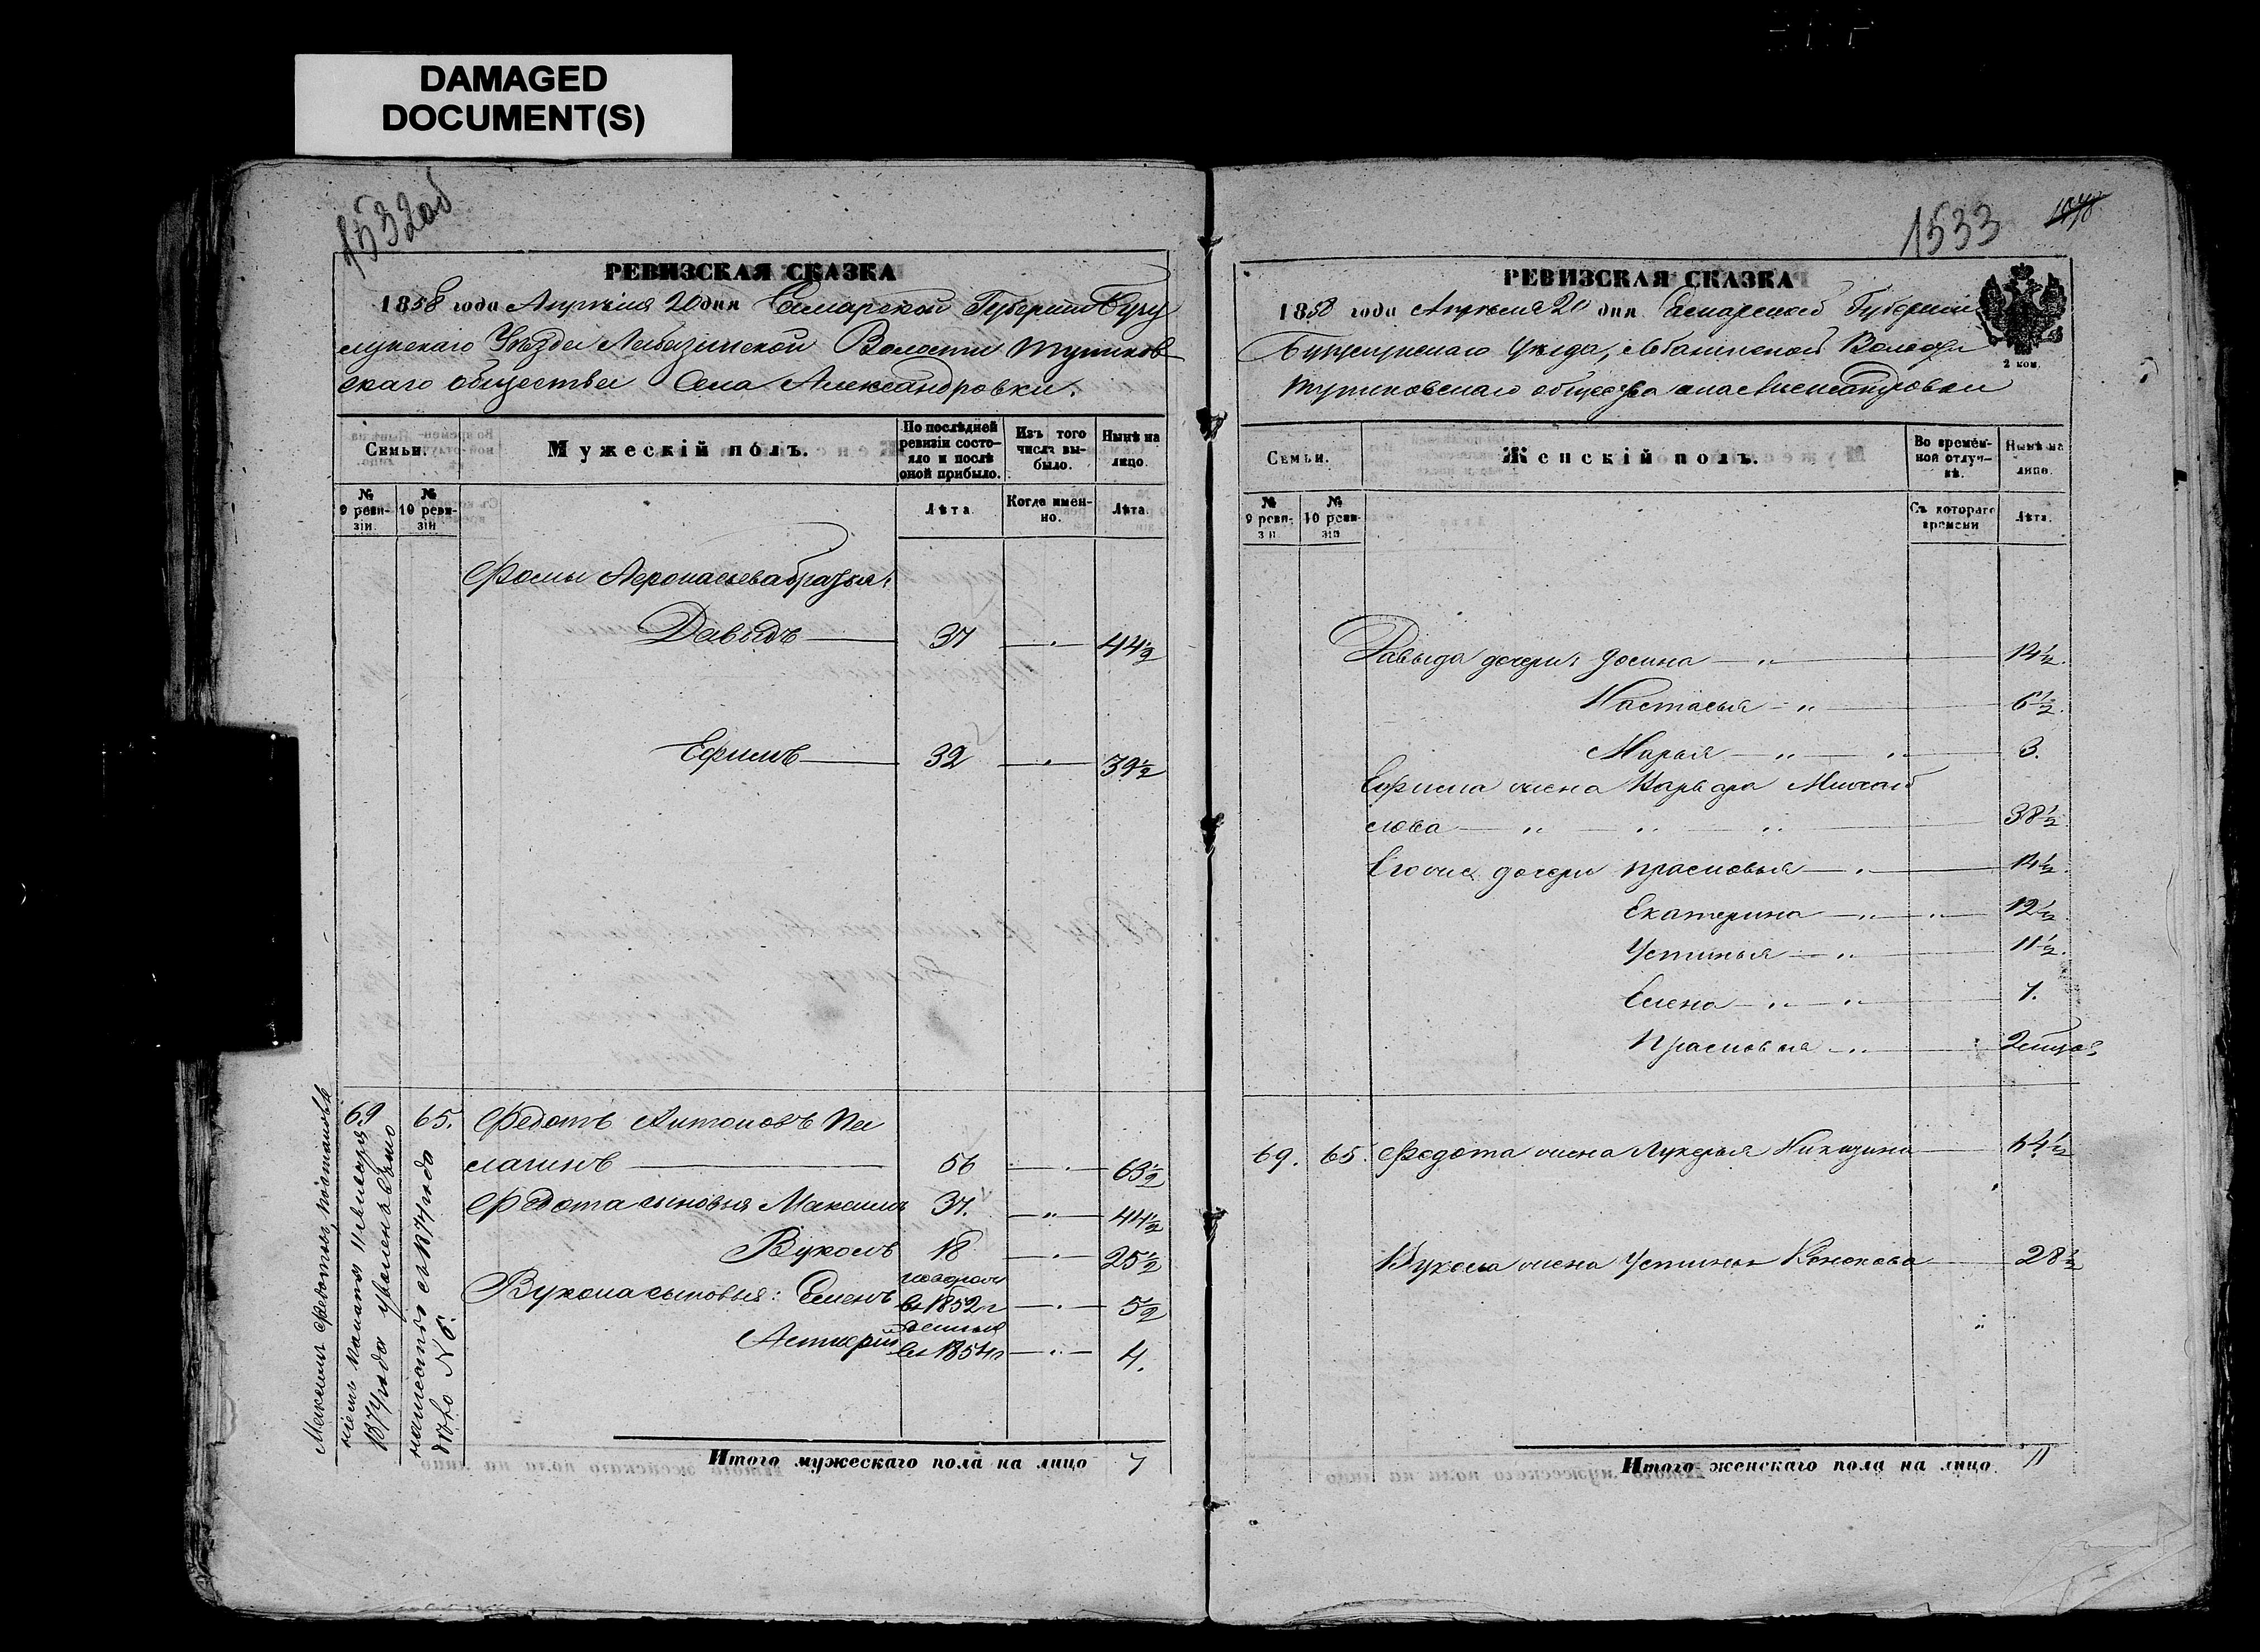 DAMAGED
DOCUMENT(S)
1532об
РЕВИЗСКАЯ СКАЗКА
1858 года Апреля 20 дня Самарской Губернии Бузу
лукскаго Уѣзда Лабазинской Волости Тупиков
скаго общества Села Александровки.
Семьи.
Мужескій полъ.
По послѣдней ревизіи состояло и послѣ оной прибыло.
Изъ того числа выбыло.
Нынѣ на лицо.
№ 9 ревизіи.
№ 10 ревизіи
Лѣта.
Когда именно.
Лѣта.
Фомы Афонасьева братья:
Давыдъ — 37 — 44½
Ефимъ — 32 — 39½
69 65. Федотъ Антоновъ Пе
лагинъ — 56 — 63½
Федота сыновья Максимъ 37. — 44½
Вуколъ 18 — 25½
Вукола сыновья: Семенъ
въ 1852 г — 5½
Астерій
въ 1854 г — 4.
Максимъ Федотовъ, постановле
ніемъ Палаты 11 Января
1874 года уволенъ въ
написанъ съ 1874 года
№ 6.
Итого мужескаго пола на лицо 7
1533
РЕВИЗСКАЯ СКАЗКА
1858 года Апреля 20 дня Самарской Губерніи
Бузулукскаго Уѣзда, Лабазинской Волости
Тупиковскаго общества села Александровки
2 коп.
Семьи.
Женскій полъ.
Во временной отлучкѣ.
Нынѣ на лицо.
№ 9 ревизіи
№ 10 ревизіи
Съ котораго времени
Лѣта.
Давыда дочери: 14½.
Настасья — 6½.
Марья — 3.
Ефима жена Варвара Михай
лова — 38½
Его же дочери Прасковья — 14½.
Екатерина — 12½
Устинья — 11½.
Елена — 7.
Прасковья —
69. 65. Федота жена Лукерья — 64½
Вукола жена Устинья Кононова — 28½
Итого женскаго пола на лицо. 11